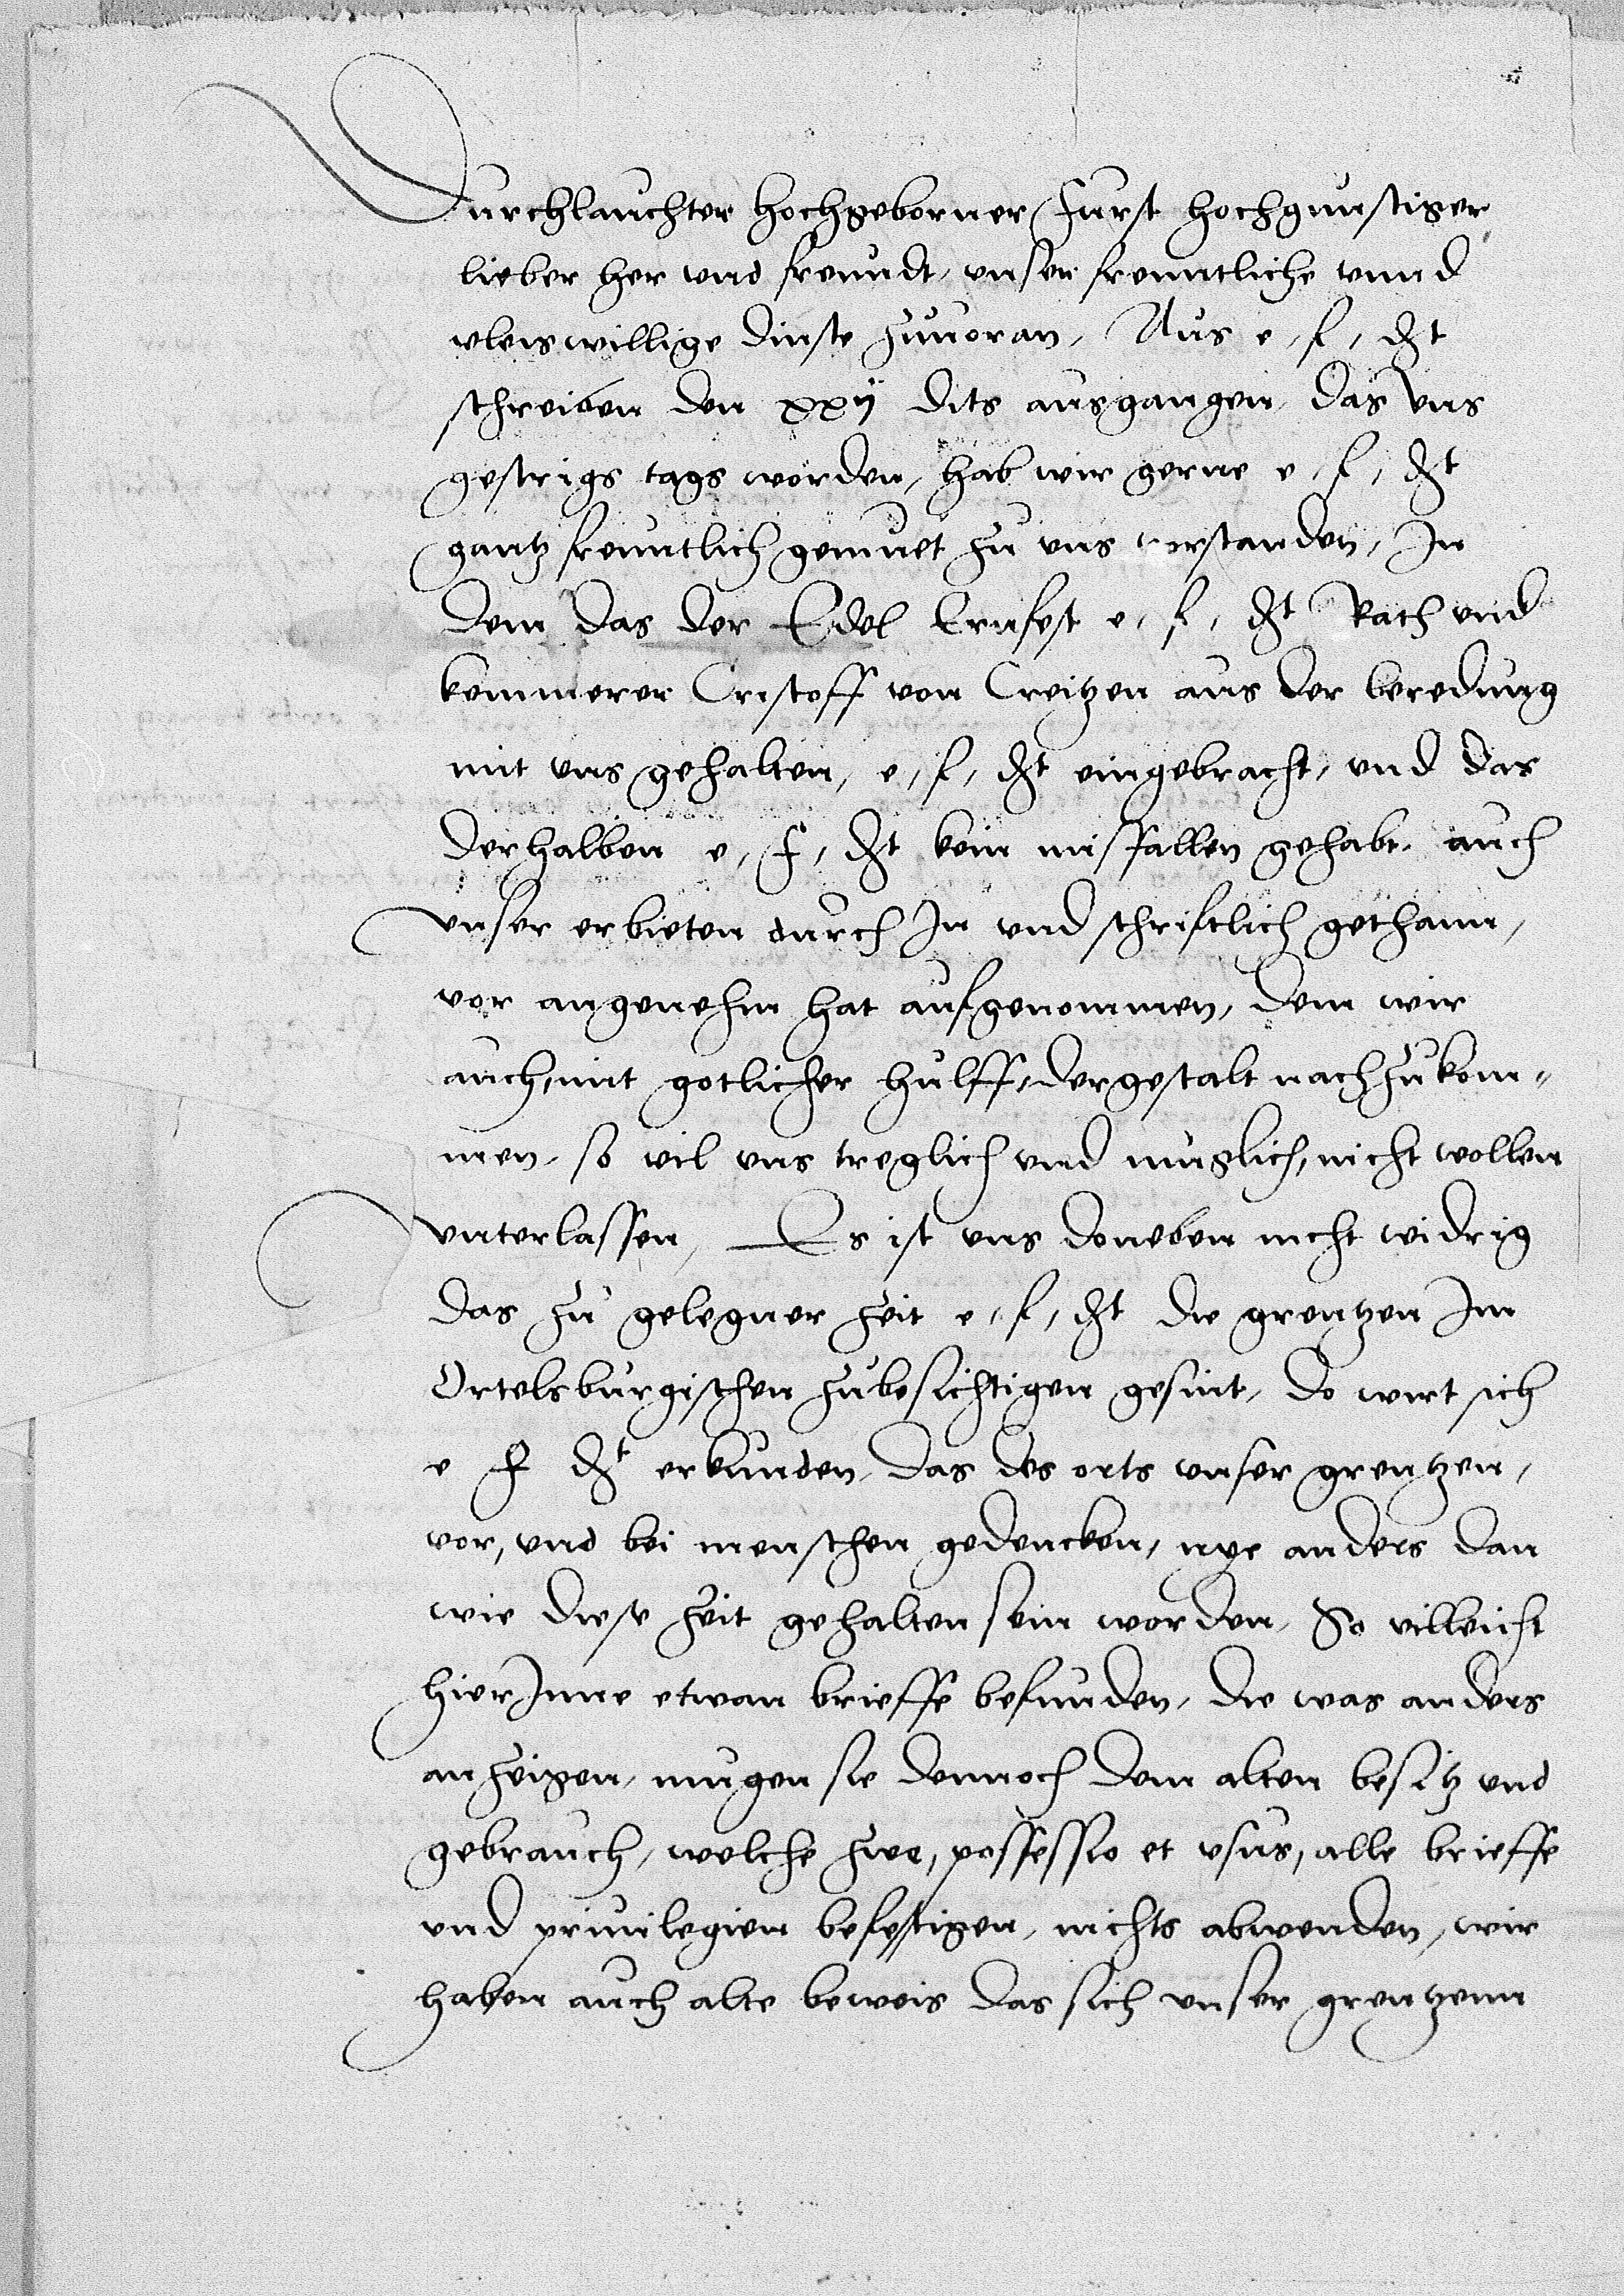 Durchlauchter hochgeborner Furst hochgunstiger
lieber her vnd freundt, vnser freuntliche vnnd
vleis willige dinste zuuoran, Aus e, f, dt
schreiben den xxij dits ausgangen, das vns
gestrigs tags worden, hab wir gerne e, f, dt
gantz freuntlich gemuet zu vns verstanden, In
dem das der Edel Ernfest e, f, dt Rath vnd
kemmerer Cristoff von Creitzen aus der beredung
mit vns gehalten, e, f, dt eingebracht, vnd das
derhalben e, f, dt kein misfallen gehabt, auch
vnser erbieten durch In vnd schriftlich gethann,
vor angenehm hat aufgenommen, dem wir
auch, mit gotlicher hulff, dergestalt nachzukom¬
men, so vil vns treglich vnd muglich, nicht wollen
vnterlassen, Es ist vns doneben nicht widrig
das zu gelegner zeit e, f, dt die grentzen Im
Ortelsburgischen zubesichtigen gesint, do wirt sich
e f dt erkunden, das des orts vnser grentzen,
vor, vnd bei menschen gedencken, nye anders dan
wie diese zeit gehalten sein worden, So villeicht
hierInne etwan brieffe befunden, die was anders
anzeigen, mugen sie dennoch dem alten besitz vnd
gebrauch, welche zwe, possessio et vsus, alle brieffe
vnd priuilegien befestigen, nichts abwenden, wir
haben auch alte beweis das sich vnser grentzenn